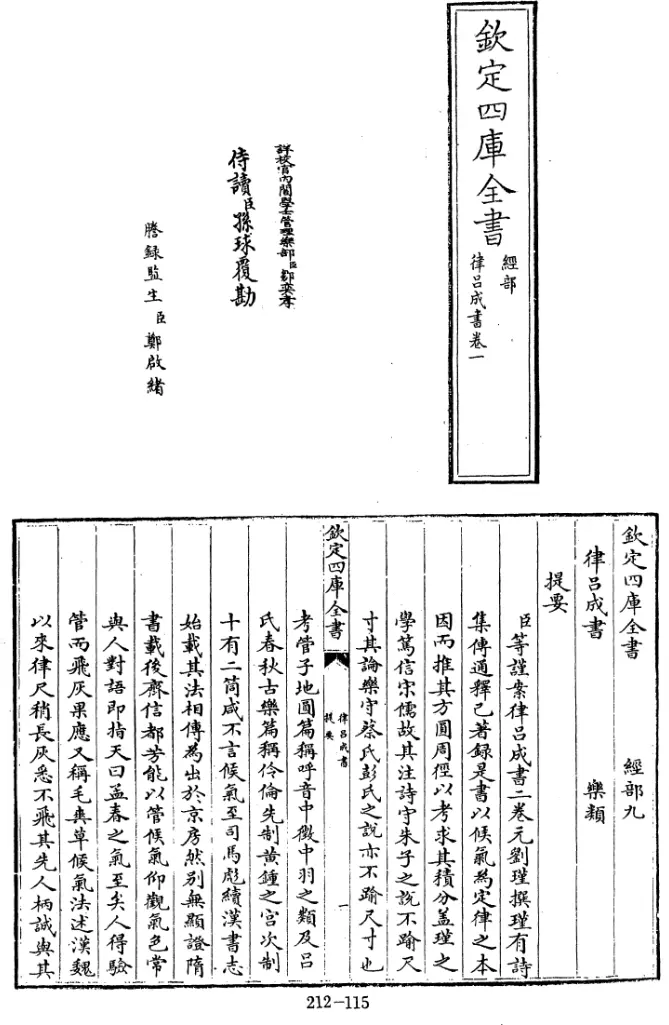 欽定四庫全書
經部
律呂成書卷一
詳校官內閣學士管理樂部臣鄒奕孝
侍讀臣孫球覆勘
謄録監生臣鄭啟緒
欽定四庫全書 經部九
律呂成書 樂類
提要
臣等謹案律呂成書二卷元劉瑾撰瑾有詩
集傳通釋已著録是書以候氣為定律之本
因而推其方圓周徑以考求其積分葢瑾之
學篤信宋儒故其注詩守朱子之説不踰尺
寸其論樂守蔡氏彭氏之説亦不踰尺寸也
欽定四庫全書
律呂成書
提要
一
考管子地圓篇稱呼音中徵中羽之類及呂
氏春秋古樂篇稱伶倫先制黄鍾之宮次制
十有二筒咸不言候氣至司馬彪續漢書志
始載其法相傳為出於京房然别無顯證隋
書載後齊信都芳能以管候氣仰觀氣色常
與人對語即指天曰孟春之氣至矣人得驗
管而飛灰果應又稱毛爽草候氣法述漢魏
以來律尺稍長灰悉不飛其先人柄誠與其
212-115